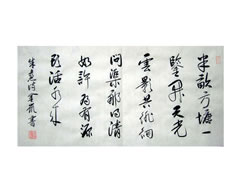 半畝方塘一
鑒開天光
雲影共徘徊
問渠那得清
如許為有源
頭活水來
朱熹詩 書